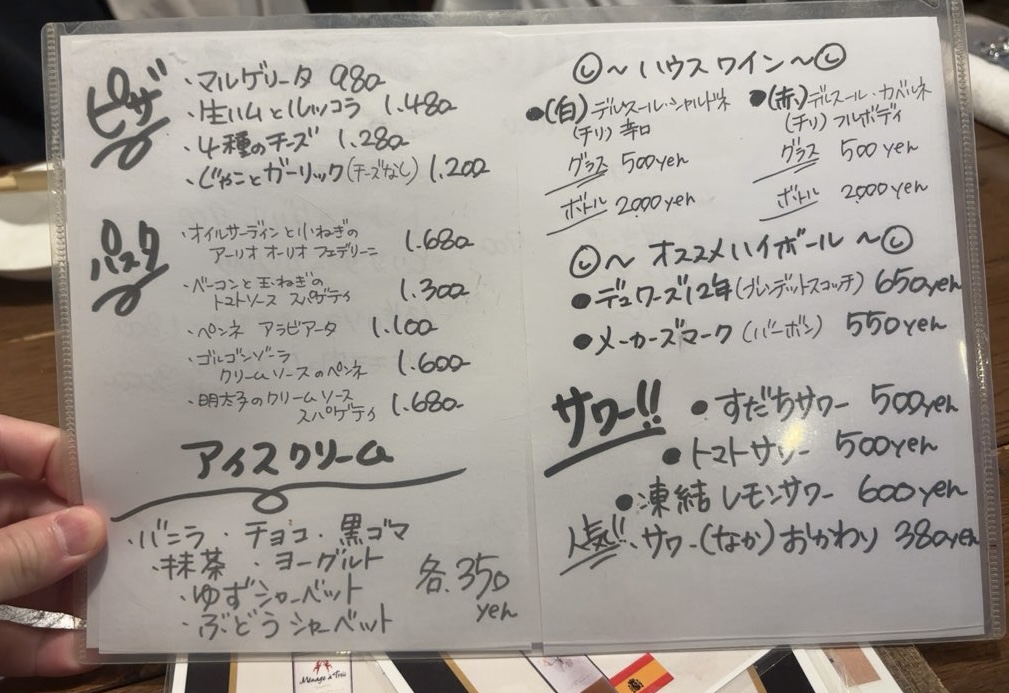 ピザ
・マルゲリータ 980
・生ハムとルッコラ 1.480
・4種のチーズ 1.280
・じゃことガーリック(チーズなし) 1.200
パスタ
・オイルサーディンと小ねぎの
アーリオ オーリオ フェデリーニ 1.680
・ベーコンと玉ねぎの
トマトソース スパゲティ 1.300
・ペンネ アラビアータ 1.100
・ゴルゴンゾーラ
クリームソースのペンネ 1.600
・明太子のクリームソース
スパゲティ 1.680
アイスクリーム
・バニラ ・チョコ ・黒ゴマ
・抹茶 ・ヨーグルト
・ゆずシャーベット
・ぶどうシャーベット
各.350
yen
～ハウスワイン～
●(白)デルスール・シャルドネ
(チリ)辛口
グラス 500yen
ボトル 2000yen
●(赤)デルスール・カベルネ
(チリ)フルボディ
グラス 500yen
ボトル 2000yen
～オススメハイボール～
●デュワーズ12年(ブレンデットスコッチ) 650yen
●メーカーズマーク(バーボン) 550yen
サワー!!
●すだちサワー 500yen
●トマトサワー 500yen
●凍結レモンサワー 600yen
人気!! サワー(なか)おかわり 380yen
Ménage à Trois